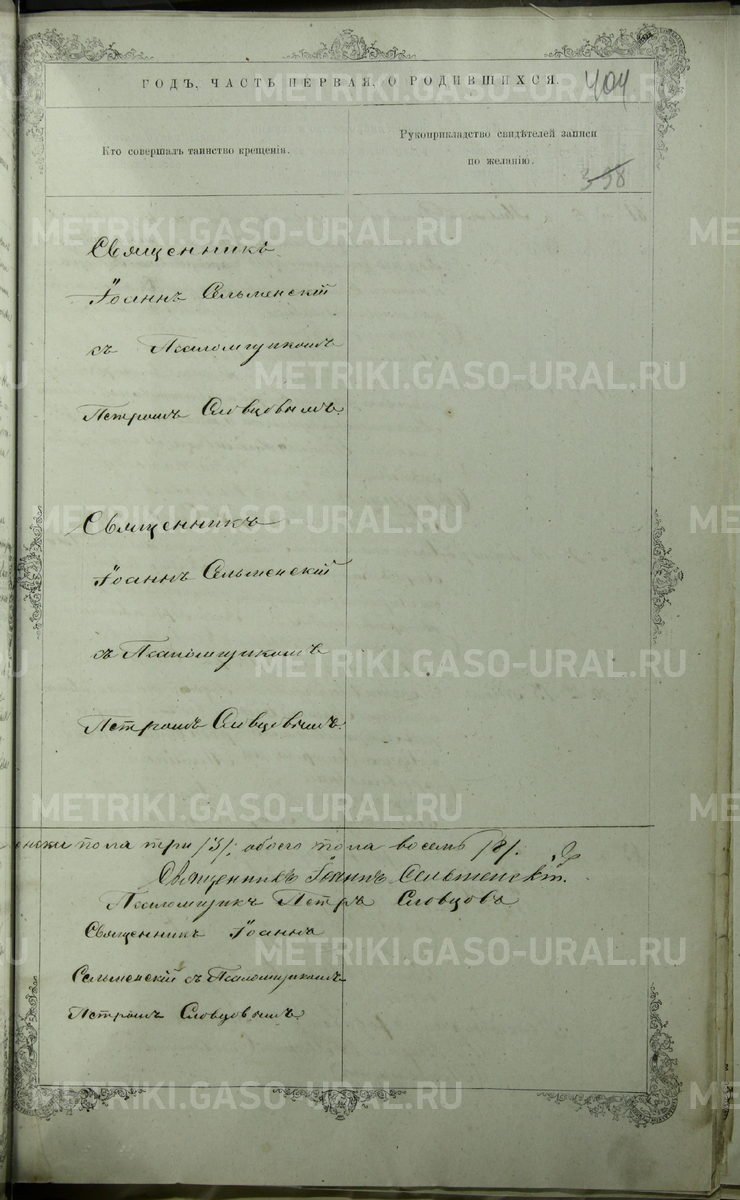 ГОДЪ, ЧАСТЬ ПЕРВАЯ, О РОДИВШИХСЯ.
404
Кто совершалъ таинство крещенія.
Рукоприкладство свидѣтелей записи
по желанію.
398
Священникъ
Іоаннъ Сельменскій
съ Псаломщикомъ
Петромъ Словцовымъ.
Священникъ
Іоаннъ Сельменскій
съ Псаломщикомъ
Петромъ Словцовымъ.
пола три /3/, обоего пола восемь /8/.
Священникъ Іоаннъ Сельменскій.
Псаломщикъ Петръ Словцовъ
Священникъ Іоаннъ
Сельменскій съ Псаломщикомъ
Петромъ Словцовымъ
METRIKI.GASO-URAL.RU